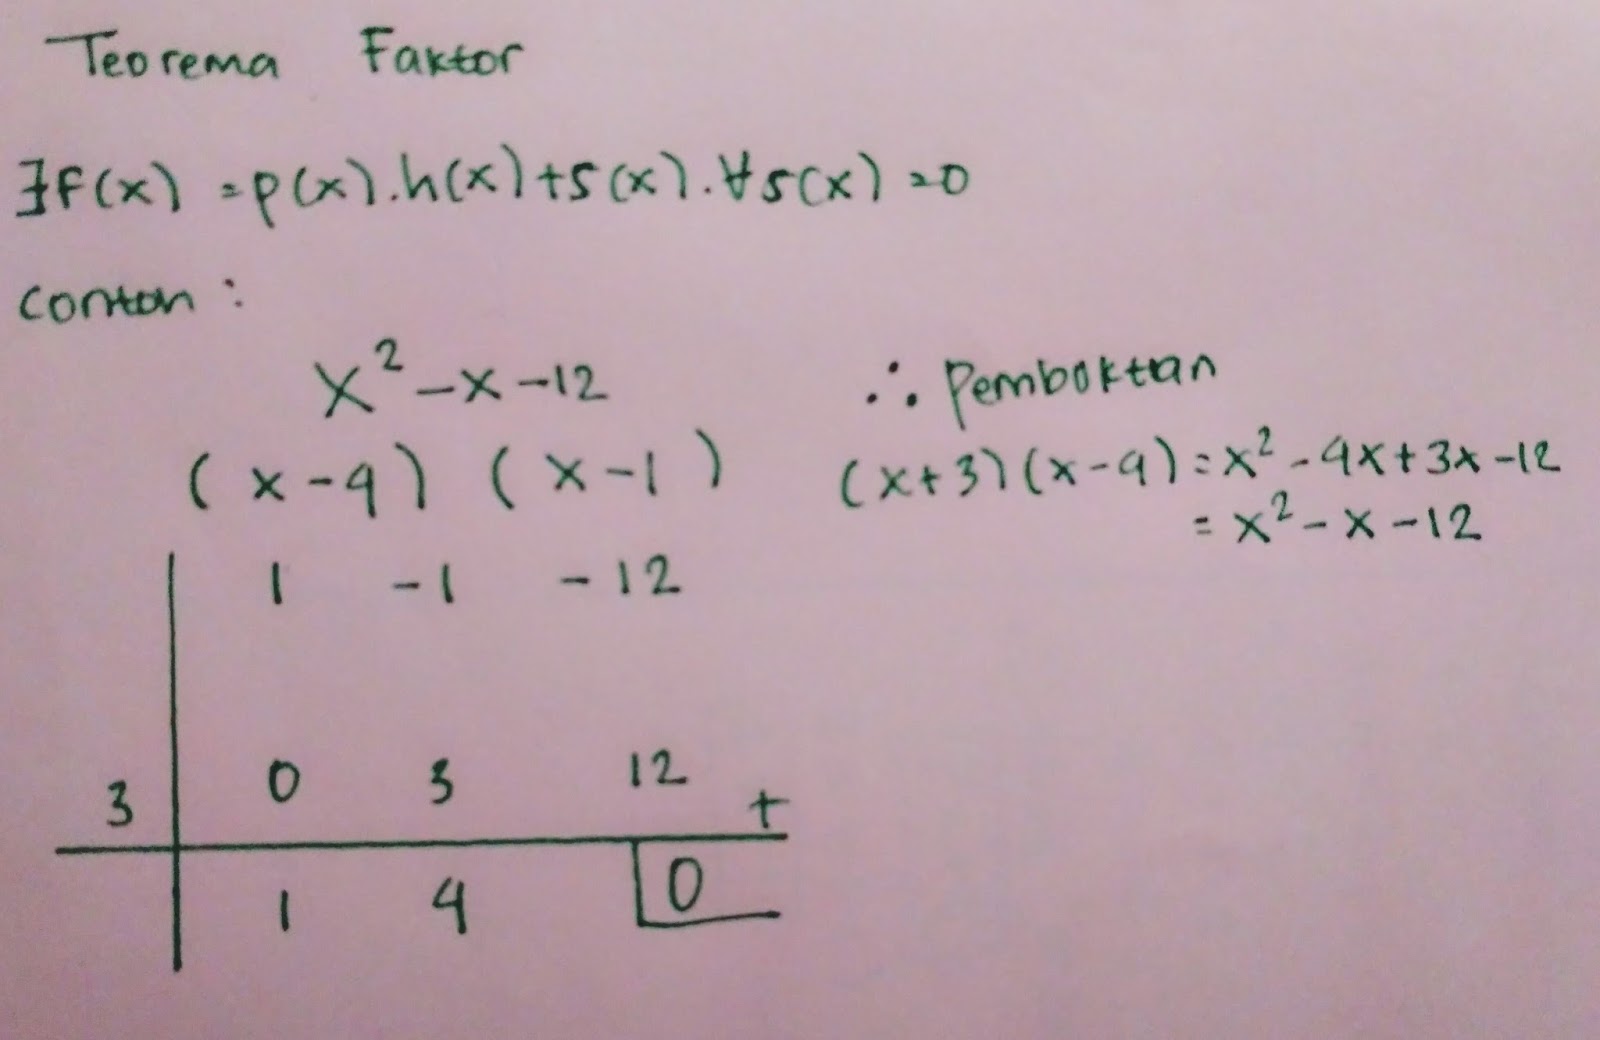 Teorema Faktor
∃f(x) = p(x).h(x)+s(x).∀s(x)=0
Contoh :
x² -x -12
(x-4) (x-1)
1 -1 -12
3 0 3 12 +
1 4 0
∴ Pembuktian
(x+3)(x-4)=x²-4x+3x-12
= x²-x-12